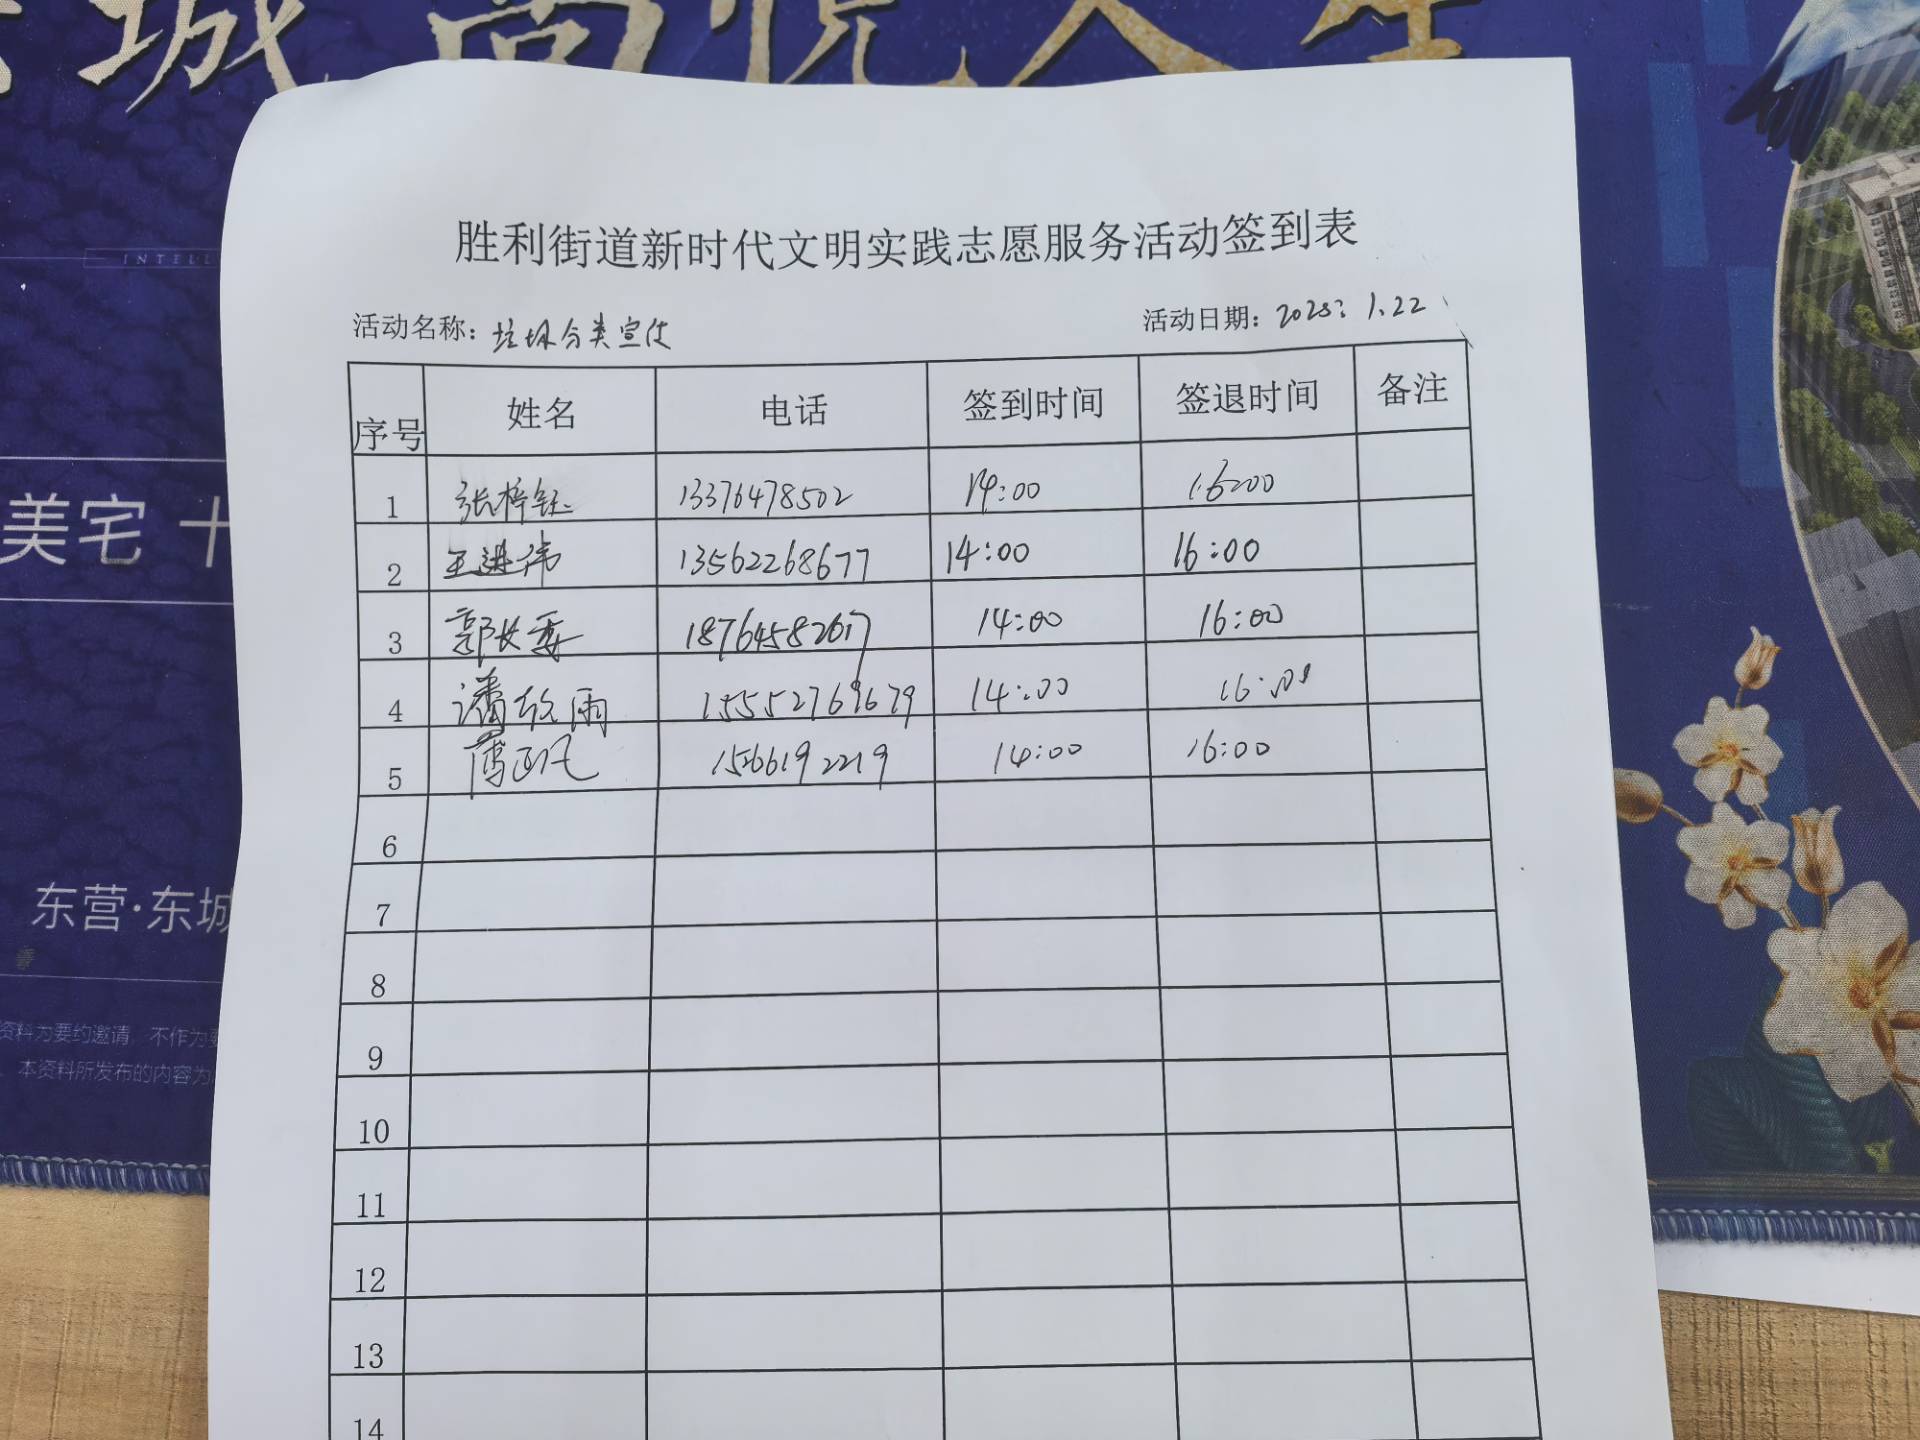 城 尚悦人生
INTELL
美宅 十
东营·东城
资料为要约邀请，不作为要
本资料所发布的内容为
胜利街道新时代文明实践志愿服务活动签到表
活动名称：垃圾分类宣传 活动日期：2025.1.22
序号 姓名 电话 签到时间 签退时间 备注
1 张梓钰 13376478502 14:00 16:00
2 王进伟 13562268677 14:00 16:00
3 郭 18764582617 14:00 16:00
4 潘 雨 15552769679 14:00 16:00
5 15266192219 14:00 16:00
6
7
8
9
10
11
12
13
14